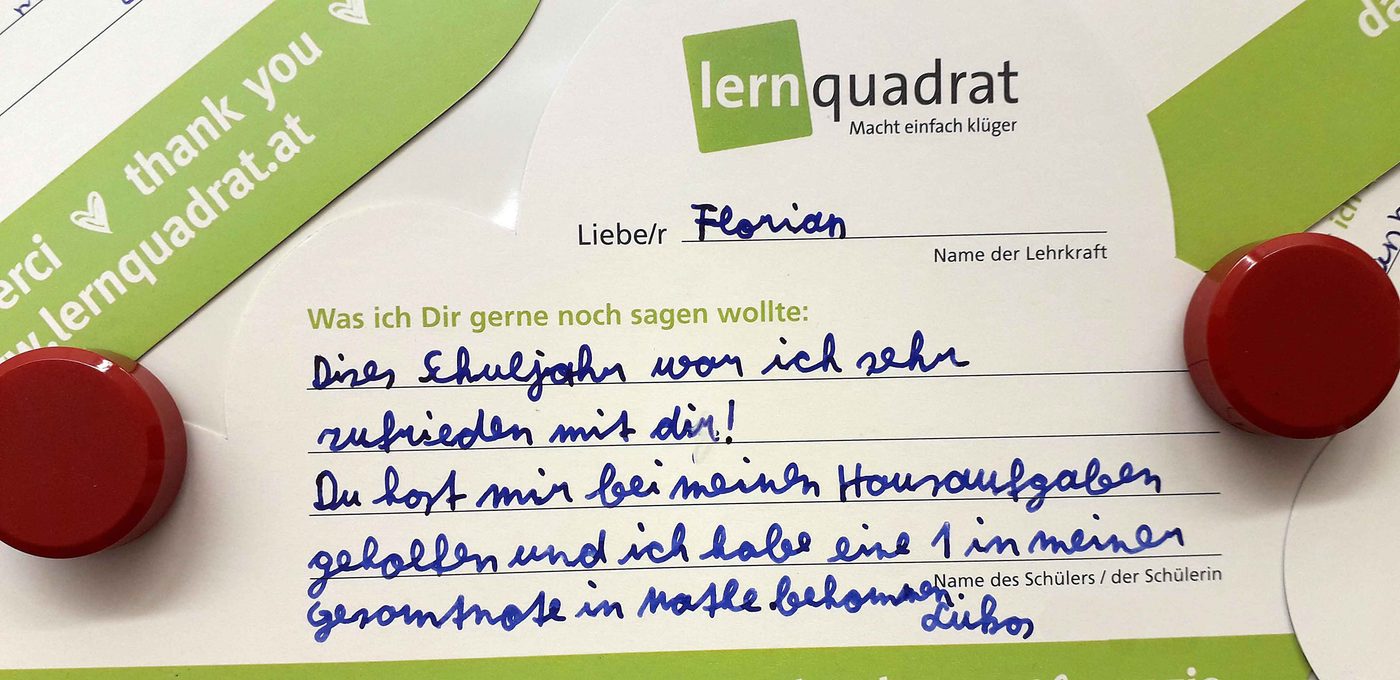 thank you
erci
w.lernquadrat.at
lernquadrat
Macht einfach klüger
Liebe/r Florian
Name der Lehrkraft
Was ich Dir gerne noch sagen wollte:
Dises Schuljahr war ich sehr
zufrieden mit dir!
Du hast mir bei meinen Hausaufgaben
geholfen und ich habe eine 1 in meiner
Name des Schülers / der Schülerin
Gesamtnote in Mathe bekommen.
Lukas
da
ich